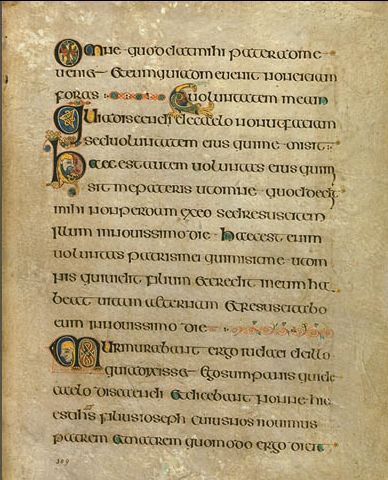 Omne quod dat mihi pater ad me
ueniet et eum qui ad me uenit non eiciam
foras uoluntatem meam
Quia discendi de caelo non ut faciam
sed uoluntatem eius qui me misit
haec est autem uoluntas eius qui mi
sit me patris ut omne quod dedit
mihi non perdam ex eo sed resuscitem
illum in nouissimo die haec est enim
uoluntas patris mei qui misit me ut om
nis qui uidit filium et credit in eum ha
beat uitam aeternam et resuscitabo
eum in nouissimo die
Murmurabant ergo iudaei de illo
quia dixisset ego sum panis qui de
caelo discendi et dicebant nonne hic
est filius ioseph cuius nos nouimus
patrem et matrem quomodo ergo dicit
309